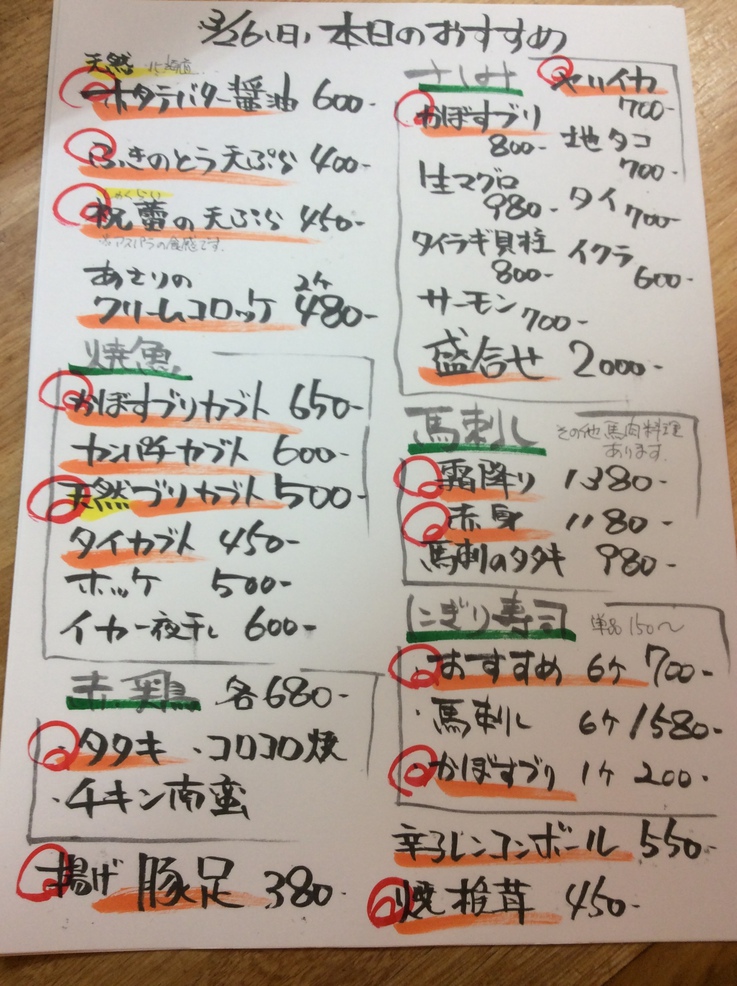 3/26(日) 本日のおすすめ
天然
ホタテバター醤油 600-
ふきのとう天ぷら 400-
しゅくらい
祝蕾の天ぷら 450-
※アスパラの食感です。
あさりの
クリームコロッケ 2ケ 480-
焼魚
かぼすブリカブト 650-
カンパチカブト 600-
天然ブリカブト 500-
タイカブト 450-
ホッケ 500-
イカ一夜干し 600-
赤鶏 各680-
・タタキ ・コロコロ焼
・チキン南蛮
揚げ豚足 380-
さしみ
ヤリイカ
700-
かぼすブリ
800-
地タコ
700-
生マグロ
980-
タイ 700-
タイラギ貝柱
800-
イクラ
600-
サーモン 700-
盛合せ 2000-
馬刺し その他馬肉料理
あります。
霜降り 1380-
赤身 1180-
馬刺のタタキ 980-
にぎり寿司 単品150〜
・おすすめ 6ケ 700-
・馬刺し 6ケ 1580-
・かぼすブリ 1ケ 200-
辛子レンコンボール 550-
焼椎茸 450-